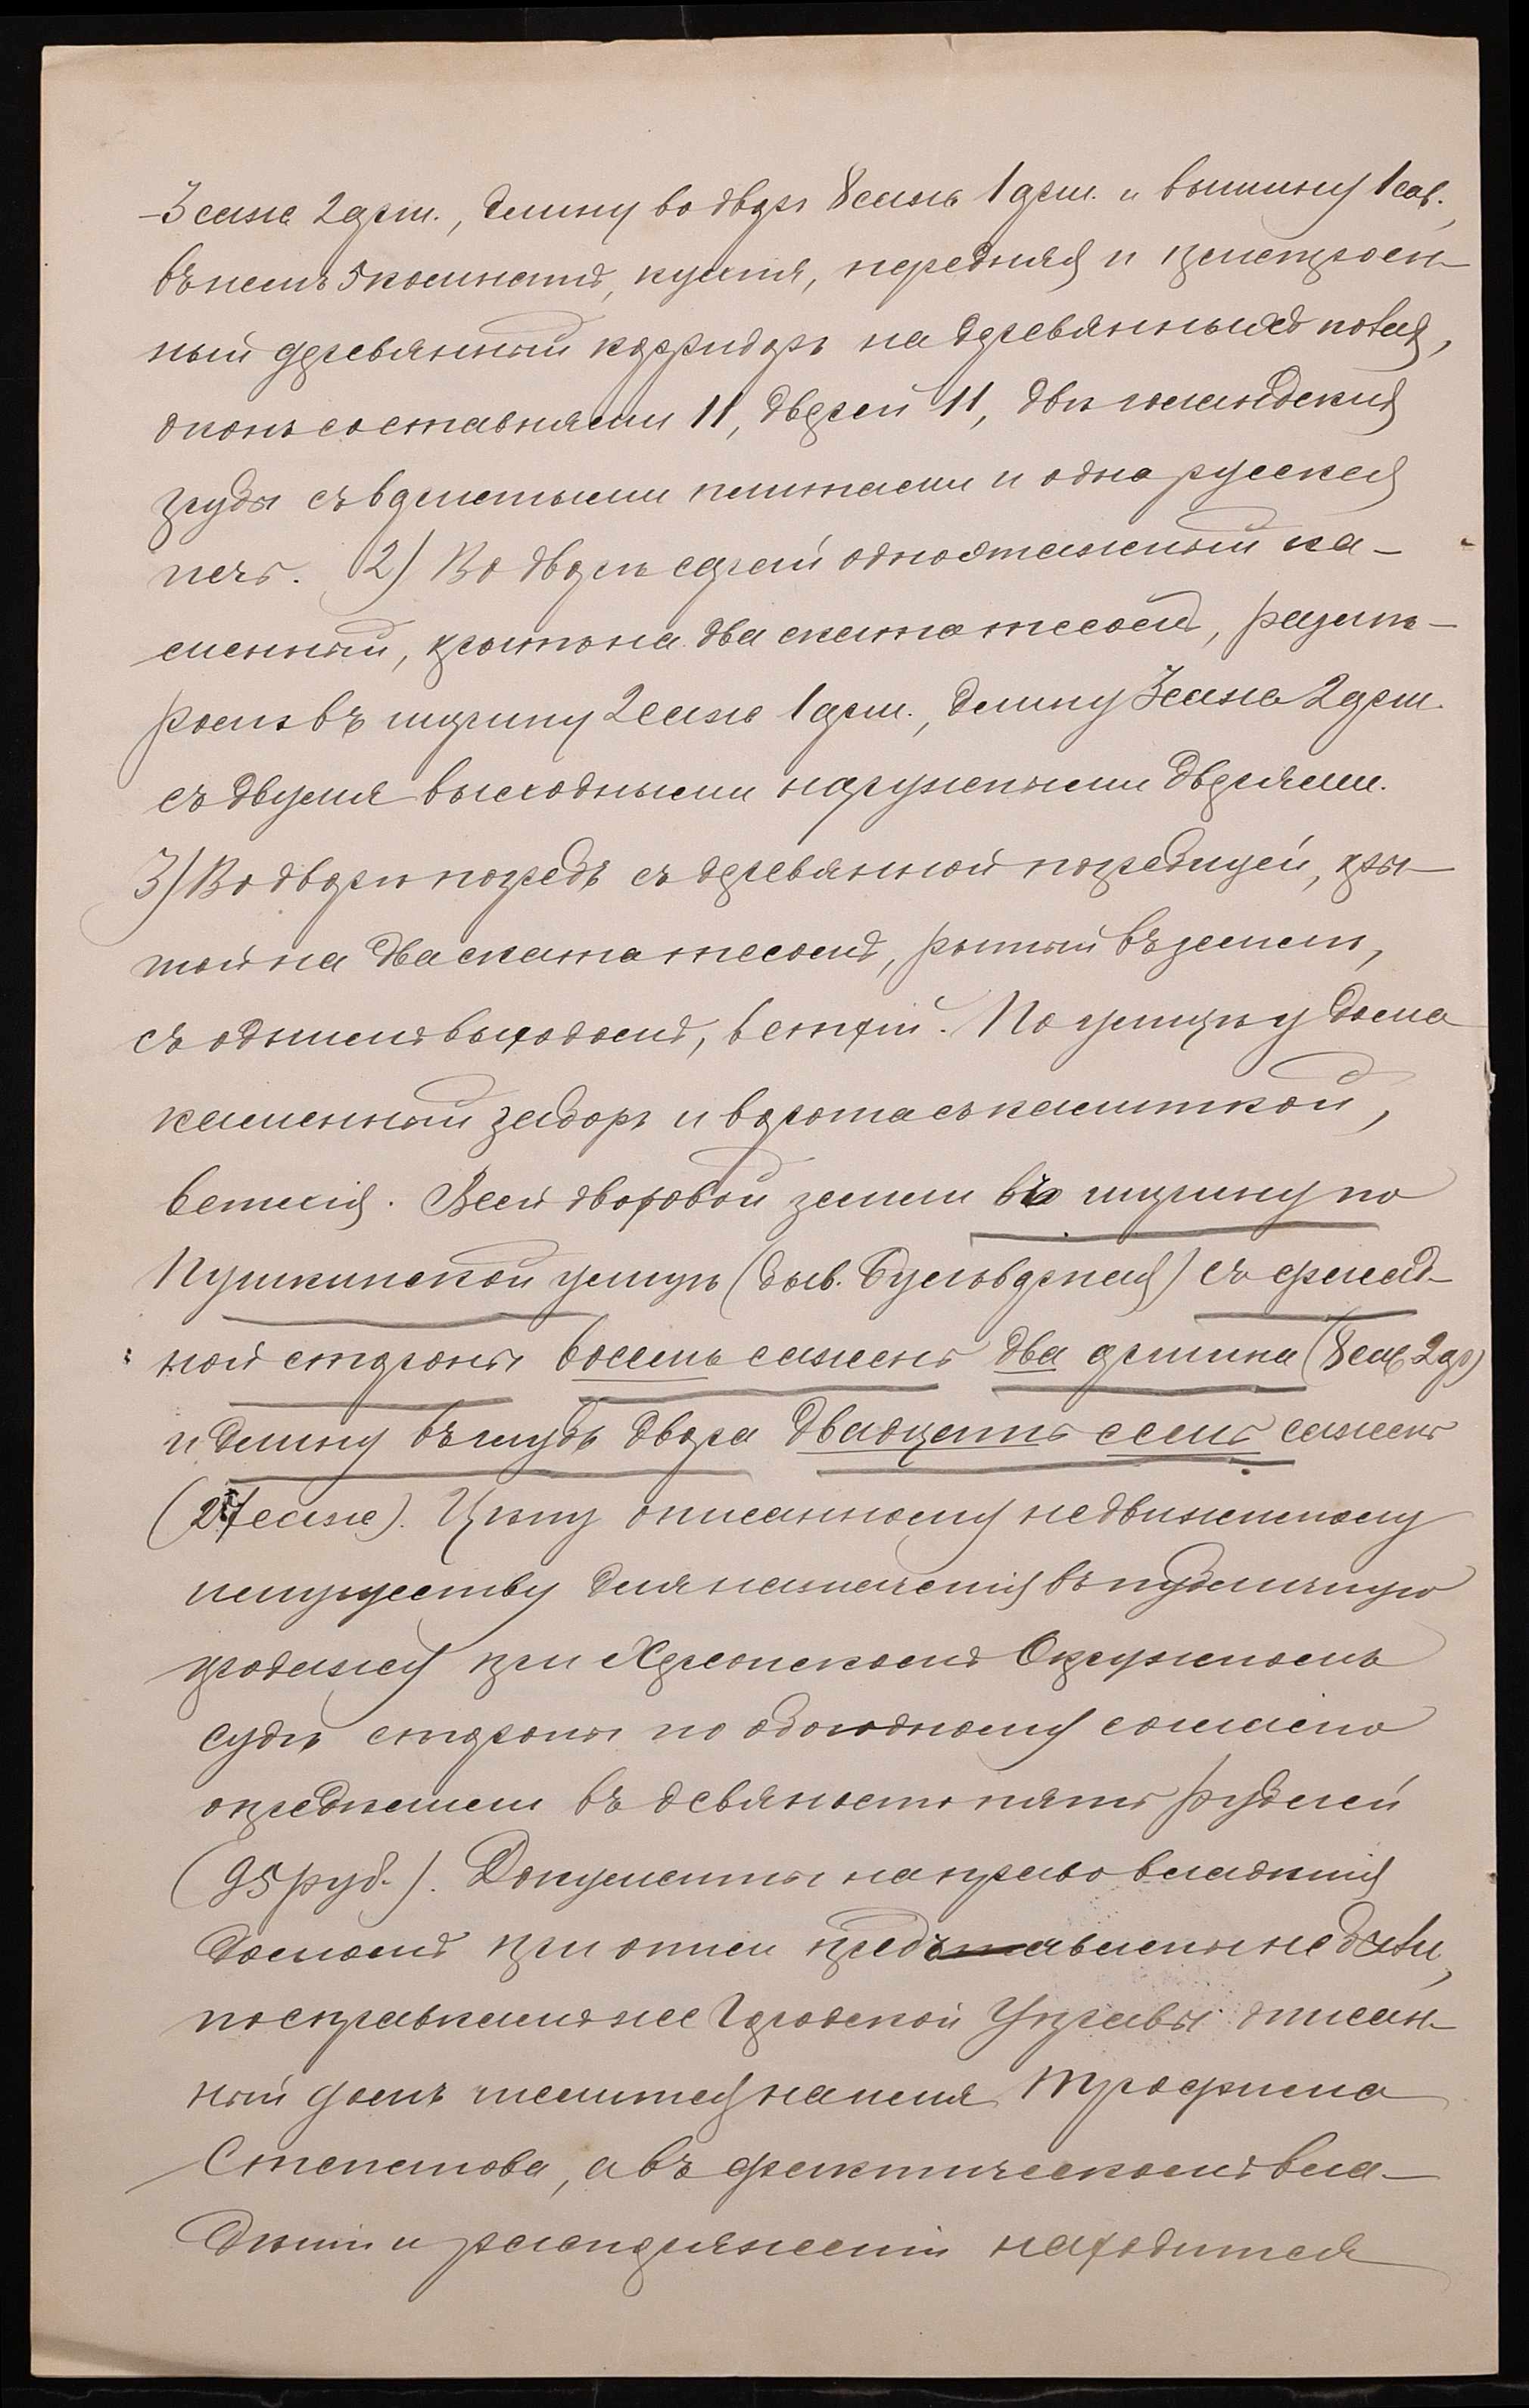 -3 саж 2 арш., длину во дворъ 8 саж 1 арш. и вышину 1 саж.,
въ немъ 5 комнатъ, кухня, передняя и пристроен-
ный деревянный корридоръ на деревянныхъ
оконъ со ставнями 11, дверей 11, двѣ голандския
грубы съ вделанными плитами и одна русская
печь. 2) Во дворѣ сарай одноэтажный ка-
менный, крытъ на два ската тесомъ, размѣ-
ромъ въ ширину 2 саж 1 арш., длину 3 саж 2 арш.
съ двумя выходными наружными дверями.
3) Во дворѣ погребъ съ деревянной погребицей, кры-
той на два ската тесомъ, рытый въ земли,
съ однимъ выходомъ, ветхій. По улицѣ у дома
каменный заборъ и ворота съ калиткой,
ветхія. Всей дворовой земли въ ширину по
Пушкинской улицѣ (быв. Бульварная) съ фасад-
ной стороны восемь сажень два аршина (8 саж 2 ар)
и длину въ глубь двора двадцать семь сажень
(27 саж). Цѣну описанному недвижимому
имуществу для назначенія въ публичную
продажу при Херсонскомъ Окружномъ
судѣ стороны по обоюдному согласію
опредѣлили въ девяносто пять рублей
(95 руб.). Документы на право владѣнія
домомъ при описи представлены не были,
по справкамъ же Городской Управы описан-
ный домъ числится на имя Трофима
Степанова, а въ фактическомъ вла-
дѣніи и распоряженіи находится